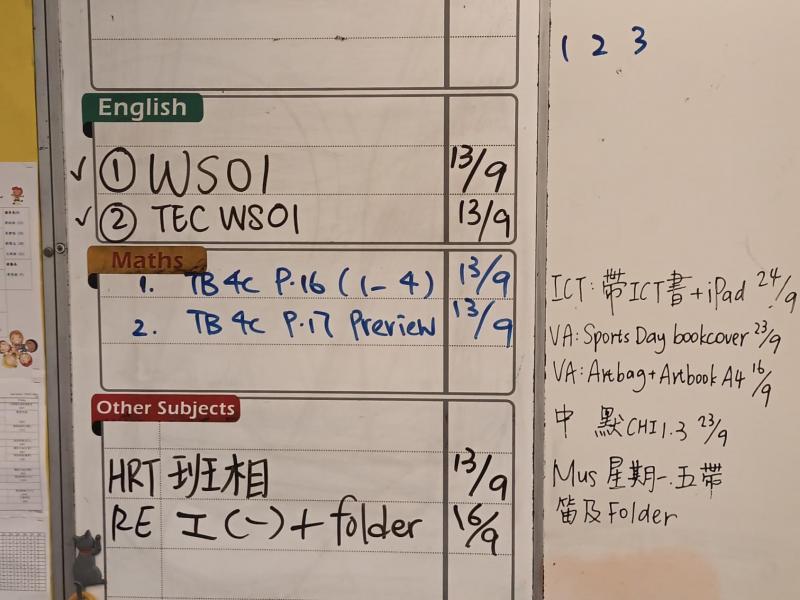 1 2 3
English
✓ ① WS01 13/9
✓ ② TEC WS01 13/9
Maths
1. TB 4C P.16 (1-4) 13/9
2. TB 4C P.17 Preview 13/9
Other Subjects
HRT 班相 13/9
RE 工(一)+folder 16/9
ICT: 帶ICT書+iPad 24/9
VA: Sports Day bookcover 23/9
VA: Artbag+Artbook A4 16/9
中 默CHI1.3 23/9
Mus 星期一.五帶
笛及Folder